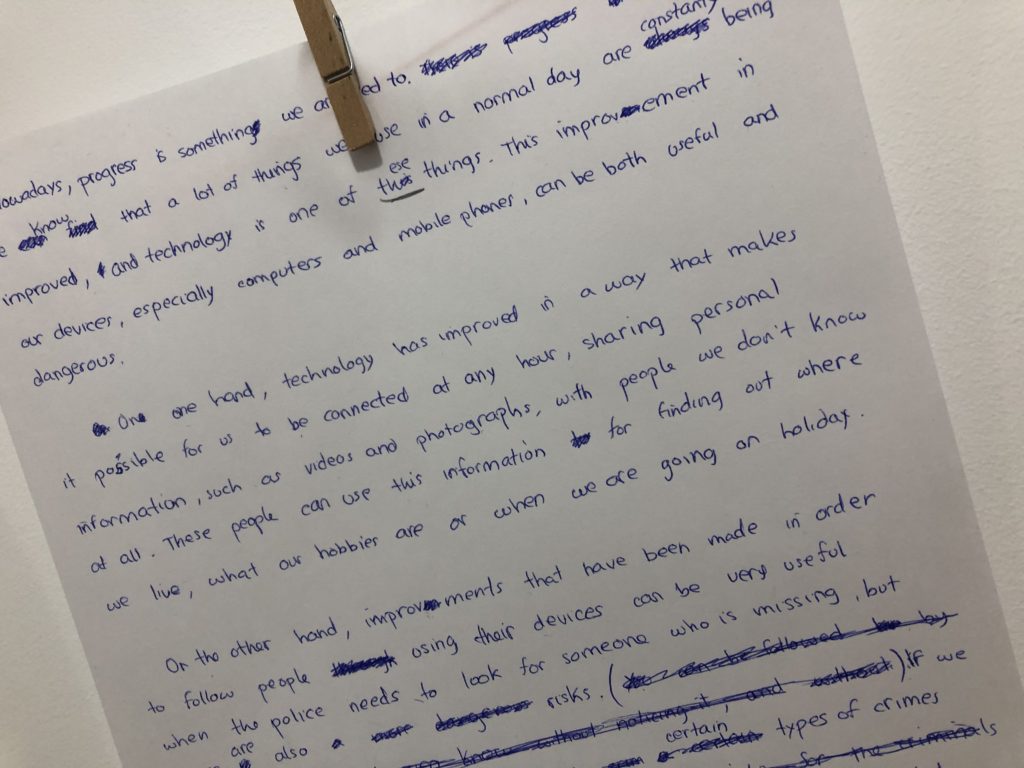 nowadays, progress is something we ar ed to.
e know that a lot of things we use in a normal day are constantly being
improved, and technology is one of these things. This improvement in
our devices, especially computers and mobile phones, can be both useful and
dangerous.
On one hand, technology has improved in a way that makes
it possible for us to be connected at any hour, sharing personal
information, such as videos and photographs, with people we don't know
at all. These people can use this information for finding out where
we live, what our hobbies are or when we are going on holiday.
On the other hand, improvments that have been made in order
to follow people using their devices can be very useful
when the police needs to look for someone who is missing, but
are also risks. ( ) If we
certain types of crimes